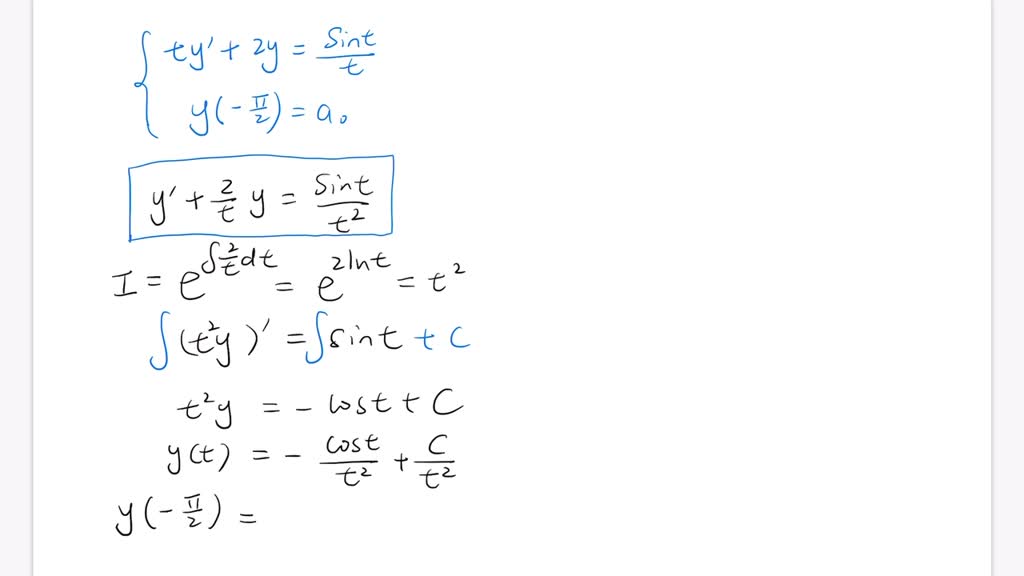 ty' + 2y = sint/t
y(-π/2) = a₀
y' + 2/t y = sint/t²
I = e^∫2/t dt = e^2lnt = t²
∫(t²y)' = ∫sint + C
t²y = - cost + C
y(t) = - cost/t² + C/t²
y(-π/2) =